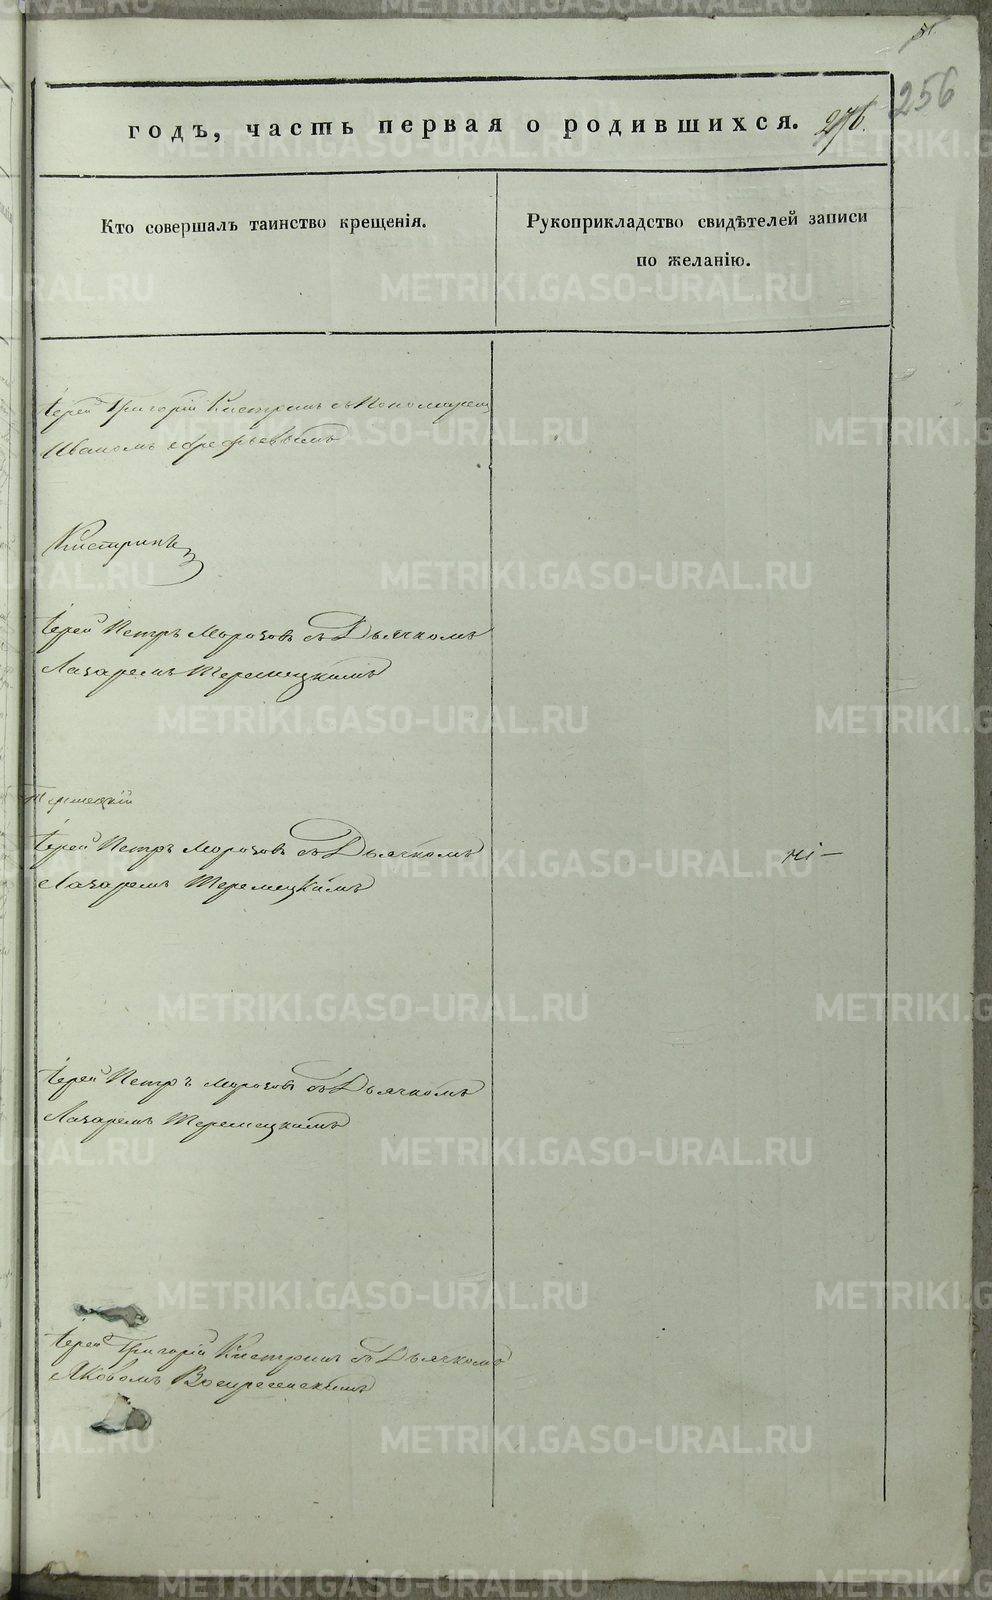 256
годъ, часть первая о родившихся. 246.
Кто совершалъ таинство крещенія.
Рукоприкладство свидѣтелей записи
по желанію.
Іерей Григорій Кистринъ съ Пономаремъ
Иваномъ
Кистринъ
Іерей Петръ Морозовъ съ Дьячкомъ
Лазаремъ Теремецкимъ
Теремецкій
Іерей Петръ Морозовъ съ Дьячкомъ
Лазаремъ Теремецкимъ
Іерей Петръ Морозовъ съ Дьячкомъ
Лазаремъ Теремецкимъ
Іерей Григорій Кистринъ съ Дьячкомъ
Яковомъ Воскресенскимъ
METRIKI.GASO-URAL.RU